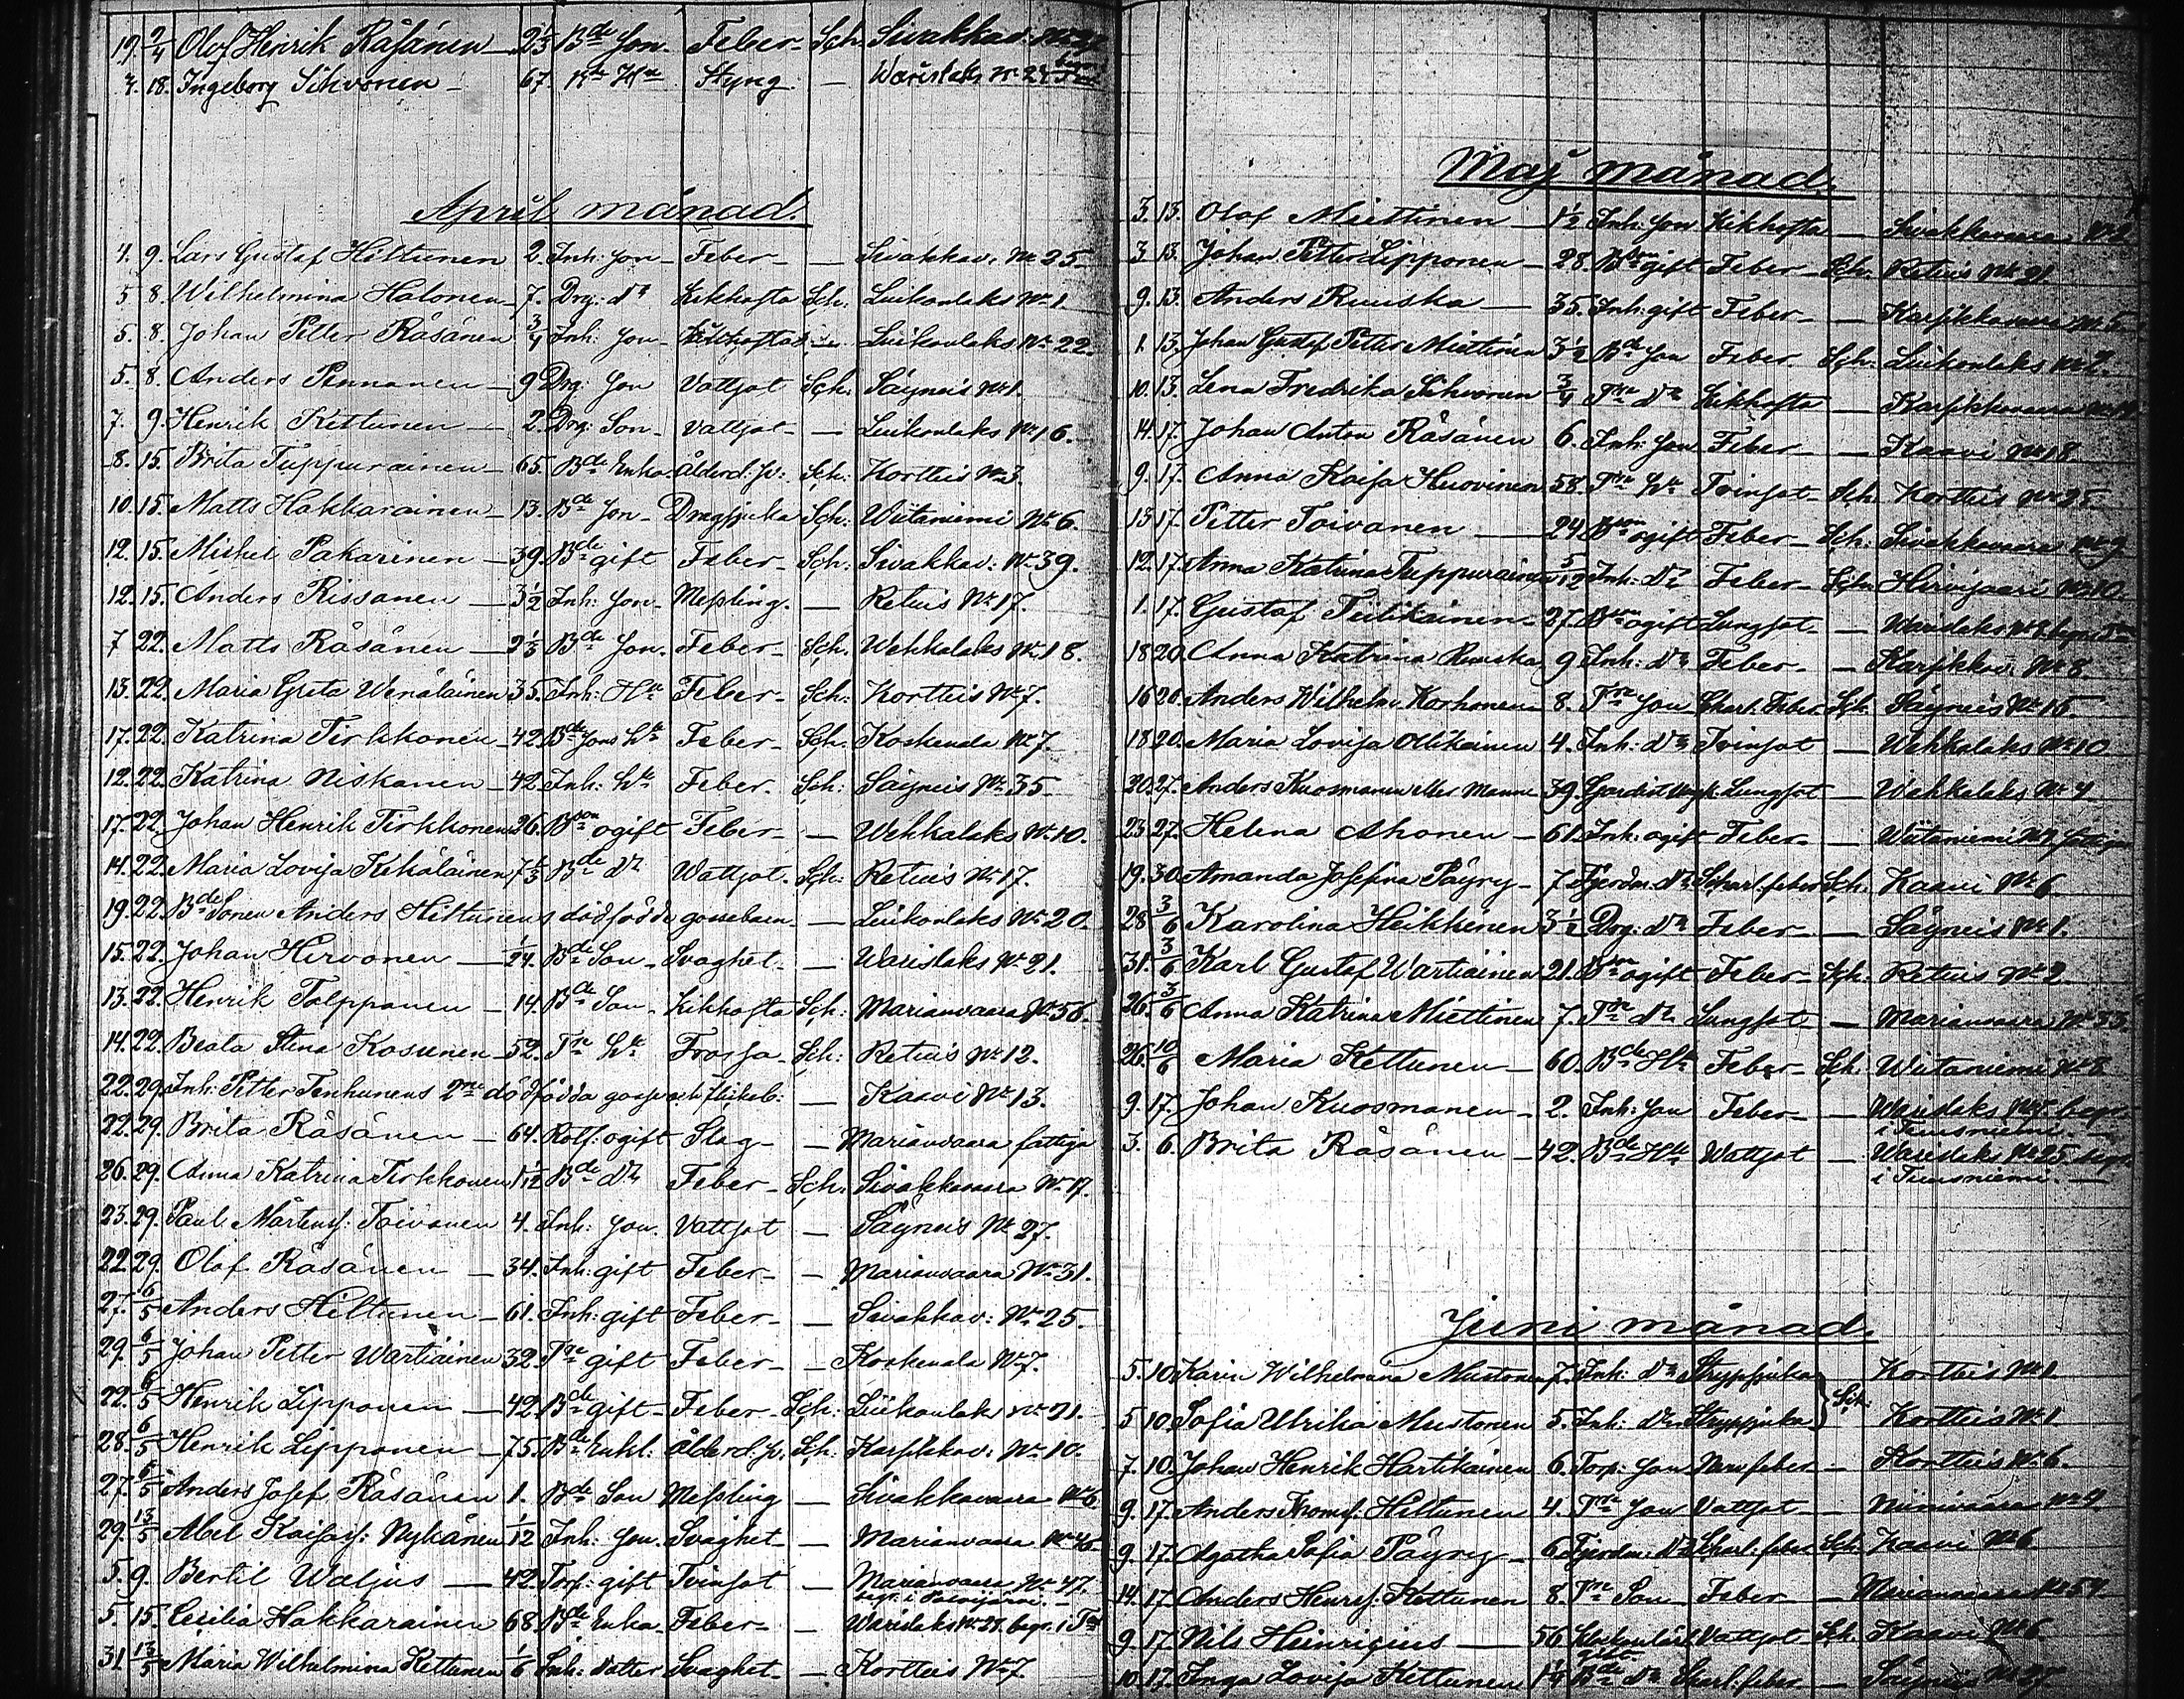 19. 2/4 Olof Henrik Räsänen 2 1/3 Bde Son Feber Sch. Sivakkav.
7. 18. Ingeborg Sihvonen 67. Hu Styng — Warislaks Nr 24
April månad.
4. 9. Lars Gustaf Hiltunen 2. Inh. Son Feber — Sivakkav. Nr 25
5 8. Wilhelmina Halonen 7. Drg: dr Kikhosta Sch. Luikonlaks Nr 1.
5. 8. Johan Petter Räsänen 3/4 Inh: Son Kikhosta — Luikonlaks Nr 22.
5. 8. Anders Pennanen 9 Drg: Son Vattsot Sch. Säyneis Nr 1.
7. 9. Henrik Kettunen 2. Drg: Son Vattsot — Luikonlaks Nr 16.
8. 15. Brita Tuppurainen 65. Bde Enka Ålderd. Sch: Kortteis Nr 3.
10. 15. Matts Hakkarainen 13. Bde Son Dragsjuka Sch: Wiitaniemi Nr 6.
12. 15. Mickel Pakarinen 39. Bde gift Feber Sch: Sivakkav: Nr 39.
12. 15. Anders Rissanen 3 1/2 Inh: Son Messling. — Retuis Nr 17.
7 22. Matts Räsänen 2 1/3 Bde Son. Feber Sch: Wehkalaks Nr 18.
13. 22. Maria Greta Wänäläinen 35. Inh: Hu Feber Sch: Kortteis Nr 7.
17. 22. Katrina Tirkkonen 42. Bde Sons Hu Feber Sch: Koskenala Nr 7.
12. 22. Katrina Niskanen 42. Inh: Hu Feber. Sch: Säyneis Nr 35.
17. 22. Johan Henrik Tirkkonen 26. Bson ogift Feber — Wehkalaks Nr 10.
14. 22. Maria Lovisa Kekäläinen 7 1/3 Bde dr Wattsot. Sch: Retuis Nr 17.
19. 22. Bde Sonen Anders Hiltunens dödfödde gossebarn — Luikonlaks Nr 20.
15. 22. Johan Hirvonen 1/24. Bde Son Svaghet — Warislaks Nr 21.
13. 22. Henrik Tolppanen 14. Bde Son Kikhosta Sch: Marianvaara Nr 56.
14. 22. Beata Stina Kosunen 52. Trp Hu Frossa Sch: Retuis Nr 12.
22. 29. Inh: Petter Tenhunens 2ne dödfödda gosse och flickeb: — Kaavi Nr 13.
22. 29. Brita Räsänen 64. Rotf: ogift Slag — Marianvaara fattiga
26. 29. Anna Katrina Tirkkonen 1 1/12 Bde dr Feber Sch. Sivakkavaara Nr 17.
23. 29. Paul Mårtens: Toivanen 4. Inh: Son. Vattsot — Säyneis Nr 27.
22 29. Olof Räsänen 34. Inh: gift Feber — Marianvaara Nr 31.
27. 6/5 Anders Hiltunen 61. Inh: gift Feber — Sivakkav: Nr 25.
29. 6/5 Johan Petter Wartiainen 32. Trp gift Feber — Koskenala Nr 7.
22. 6/5 Henrik Lipponen 42. Bde gift Feber Sch: Luikonlak Nr 21.
28. 6/5 Henrik Lipponen 75. Bde Enkl: Ålderd. Sch: Karsikkav: Nr 10.
27. 6/5 Anders Josef Räsänen 1. Bde Son Messling — Sivakkavaara Nr 6
29. 13/5 Abel Kaisas: Nykänen 1/12 Inh: Son. Svaghet — Marianvaara Nr 46
5. 9. Bertil Waljus 42. Torp: gift Tvinsot — Marianvaara Nr 47. begr. i Polvijärvi.
5. 15. Cecilia Hakkarainen 68. Bde Enka Feber — Warislaks Nr 28. begr. i
31 13/5 Maria Wilhelmina Kettunen 1/6 Inh: dotter Svaghet — Kortteis Nr 7.
Maj månad.
3. 13. Olof Miettinen 1 1/2 Inh: Son Kikhosta — Sivakkavaara Nr 2
3 13. Johan Petter Lipponen 28. Bson gift Feber Sch. Retuis Nr 21.
9. 13. Anders Ruuska 35. Inh: gift Feber — Karsikkavaara Nr 5
1. 13. Johan Gustaf Petter Miettinen 3 1/2 Bde Son Feber Sch. Luikonlaks Nr 2.
10. 13. Lena Fredrika Sihvonen 3/4 Trp dr Kikhosta — Karsikkavaara
14. 17. Johan Anton Räsänen 6. Inh: Son Feber — Kaavi Nr 18.
9. 17. Anna Kaisa Huovinen 58. Trp Hu Tvinsot Sch. Kortteis Nr 25.
13 17. Petter Toivanen 24 Bson ogift Feber Sch. Sivakkavaara Nr 9
12. 17. Anna Katrina Tuppurainen 5/12 Inh: dr Feber Sch Hirvijärvi Nr 10.
1. 17. Gustaf Tiilikainen 27. Bson ogift Lungsot — Warislaks
18 20. Anna Katrina Ruuska 9 Inh: dr Feber — Karsikkav: Nr 8.
16 20. Anders Wilhelm Korhonen 8. Trp Son Skarl. Feber Sch. Säyneis Nr 15
18 20. Maria Lovisa Ollikainen 4. Inh: dr Tvinsot — Wehkalaks Nr 10
20. 27. Anders Kuosmanen eller Manne 39. Gardist Lungsot — Wehkalaks Nr 4
23 27. Helena Ahonen 61. Inh: ogift Feber — Wiitaniemi fattiga
19. 30. Amanda Josefina Päyry 7 Fjerdm: dr Skarl: feber Sch. Kaavi Nr 6
28 3/6 Karolina Heikkinen 3 1/2 Drg: dr Feber — Säyneis Nr 1.
31. 3/6 Karl Gustaf Wartiainen 21. Bson ogift Feber Sch. Retuis Nr 2.
26. 3/6 Anna Katrina Miettinen 7. Trp dr Lungsot — Marianvaara Nr 33.
26. 10/6 Maria Kettunen 60. Bde Hu Feber Sch. Wiitaniemi Nr 8
9. 17. Johan Kuosmanen 2. Inh: Son Feber — Warislaks begr. i Tuusniemi.
3. 6. Brita Räsänen 42. Bde Hu Wattsot — Warislaks Nr 25. begr. i Tuusniemi.
Juni månad.
5. 10. Karin Wilhelmina Mustonen 7. Inh: dr Strypsjuka Sch. Kortteis Nr 1
5 10. Sofia Ulrika Mustonen 5. Inh: dr Strypsjuka Kortteis Nr 1
7. 10. Johan Henrik Hartikainen 6. Torp: Son Nervfeber — Kortteis Nr 6.
9. 17. Anders Thomas: Hiltunen 4. Trp Son Vattsot — Niinivaara Nr 4
9. 17. Agatha Sofia Päyry 6 Fjerdm: dr Skarl: feber Sch. Kaavi Nr 6
14. 17. Anders Henrs: Kettunen 8. Trp Son Feber — Marianvaara Nr 54
9. 17 Nils Heinricius 56 gift Vattsot Sch. Kaavi Nr 6
10. 17. Inga Lovisa Kettunen 1 1/4 Bde dr Skarl: feber — Säyneis